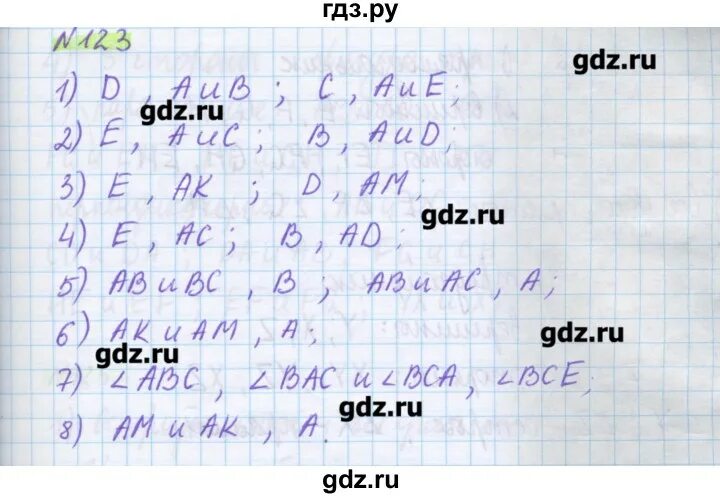 гдз.ру
№123
gdz.ru
1) D, A и B; C, A и E;
gdz.ru
2) E, A и C; B, A и D;
3) E, AK; D, AM;
gdz.ru
4) E, AC; B, AD;
5) AB и BC, B; AB и AC, A;
6) AK и AM, A;
gdz.ru
gdz.ru
7) ∠ABC, ∠BAC и ∠BCA, ∠BCE;
gdz.ru
8) AM и AK, A.
gdz.ru